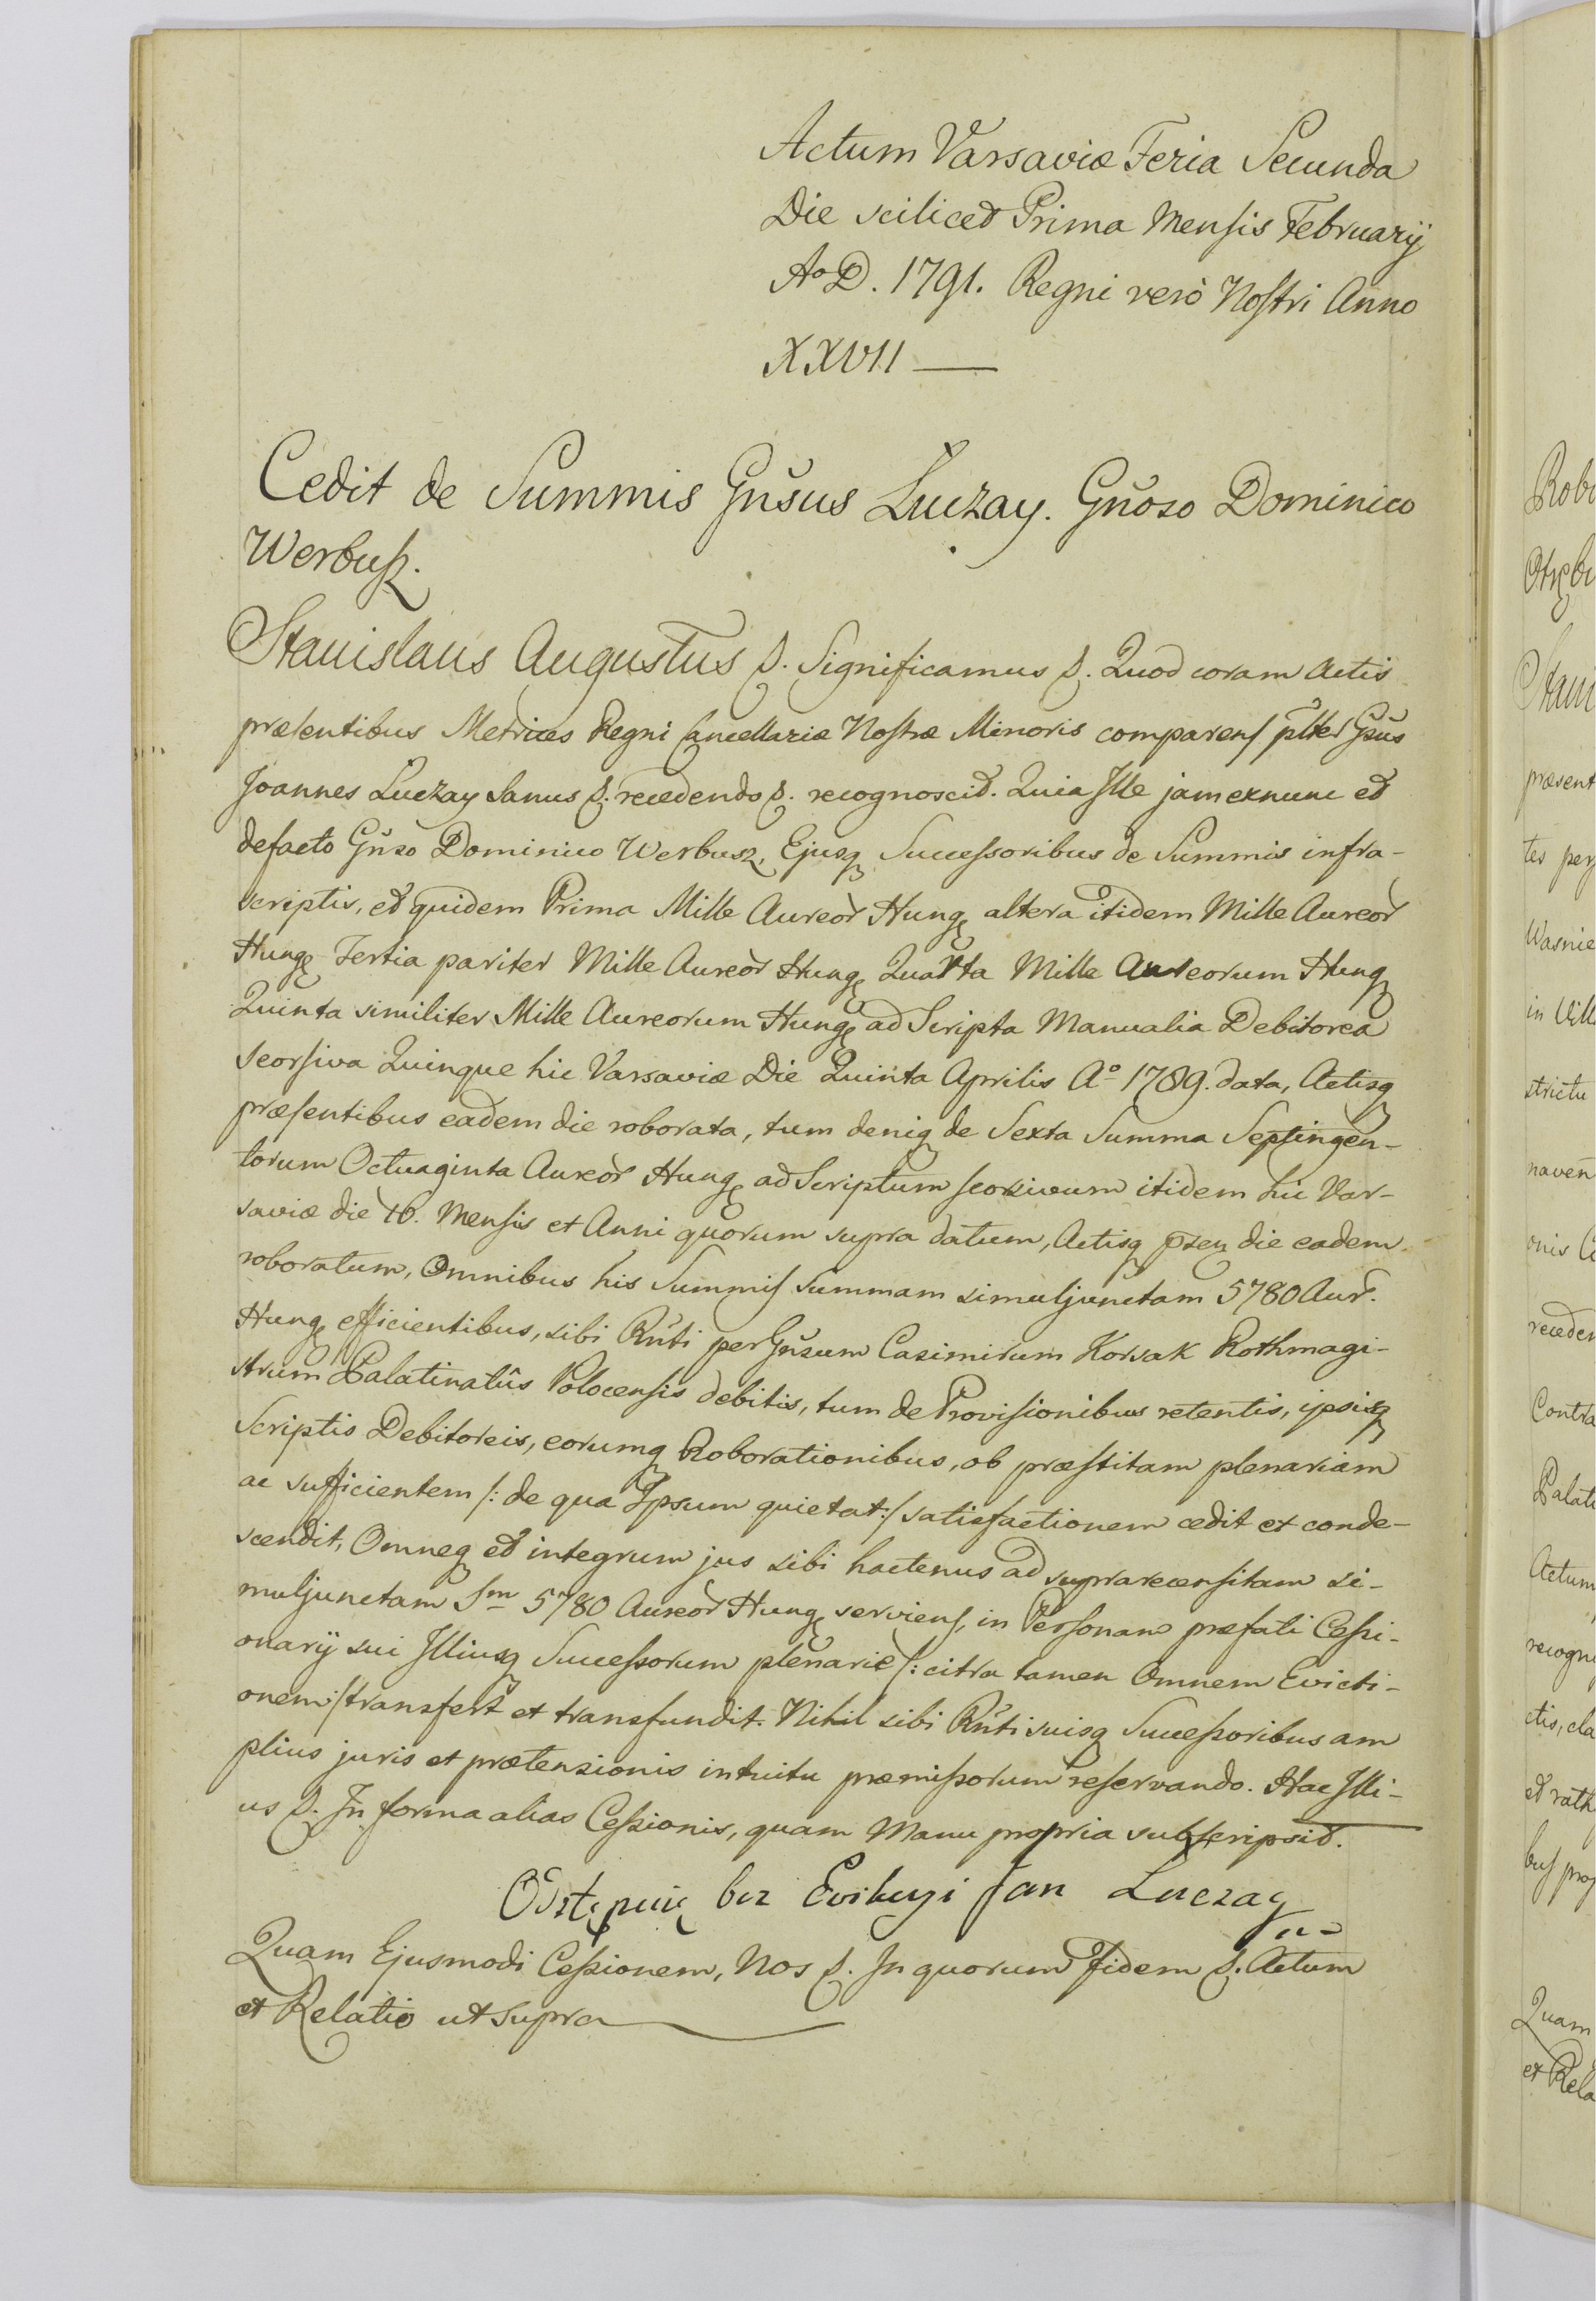 Actum Varsaviæ Feria Secunda
Die scilicet Prima Mensis Februarij
Aº D. 1791. Regni verò Nostri Anno
XXVII —
Cedit de Summis Gnŝus Łuczay. Gnŏso Dominico
Werbusz.
Stanislaus Augustus &. Significamus &. Quod coram Actis
præsentibus Metrices Regni Cancellariæ Nostræ Minoris comparens pltter Gsus
Joannes Łuczay Sanus &. recedendo &. recognoscit. Quia Ille jam exnunc et
defacto Gnŝo Dominico Werbusz, Ejusq Successoribus de Summis infra-
scriptis, et quidem Prima Mille Aureor̃ Hung altera itidem Mille Aureor̃
Hung Tertia pariter Mille Aureor̃ Hung Quarta Mille Aureorum Hung
Quinta similiter Mille Aureorum Hung ad Scripta Manualia Debitorea
seorsiva Quinque hic Varsaviæ Die Quinta Aprilis Aº 1789. data, Actisq
præsentibus eadem die roborata, tum deniq de Sexta Summa Septingen-
torum Octuaginta Aureor̃ Hung ad Scriptum seorsivum itidem hic Var-
saviæ die 16. Mensis et Anni quorum supra datum, Actisq p̃sen die eadem
roboratum, Omnibus his Summis Summam simuljunctam 5780 Aur̃.
Hung efficientibus, sibi Rñti per Gnŝum Casimirum Korsak Rothmagi-
strum Palatinatûs Polocensis debitis, tum de Provisionibus retentis, ipsisq
Scriptis Debitoreis, eorumq Roborationibus, ob præstitam plenariam
ac sufficientem /: de qua Ipsum quietat :/ satisfactionem cedit et conde-
scendit, Omneq et integrum jus sibi hactenus ad suprarecensitam si-
muljunctam Sm 5780 Aureor̃ Hung serviens, in Personam præfati Cessi-
onarij sui Illiusq Successorum plenariè /: citra tamen Omnem Evicti-
onem :/ transfert et transfundit. Nihil sibi Rñti suisq Successoribus am
plius juris et prætensionis intuitu præmissorum reservando. Hac Illi-
us &. In forma alias Cessionis, quam Manu propria subscripsit.
Odstępuię bez Evikcyi Jan Łuczay
Quam Ejusmodi Cessionem, Nos &. In quorum Fidem &. Actum
et Relatio ut supra